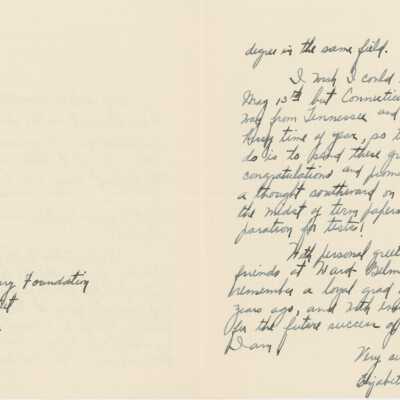 ry Foundation
degree in the same field.
I wish I could
May 13th but Connectic
way from Tennessee and
busy time of year, so t
do is to send these gr
congratulations and prom
a thought southward on
the midst of term papers
paration for tests!
With personal greet
friends at Ward-Belm
remember a loyal grad
years ago, and with
for the future success of
I am,
Very si
Elizabet